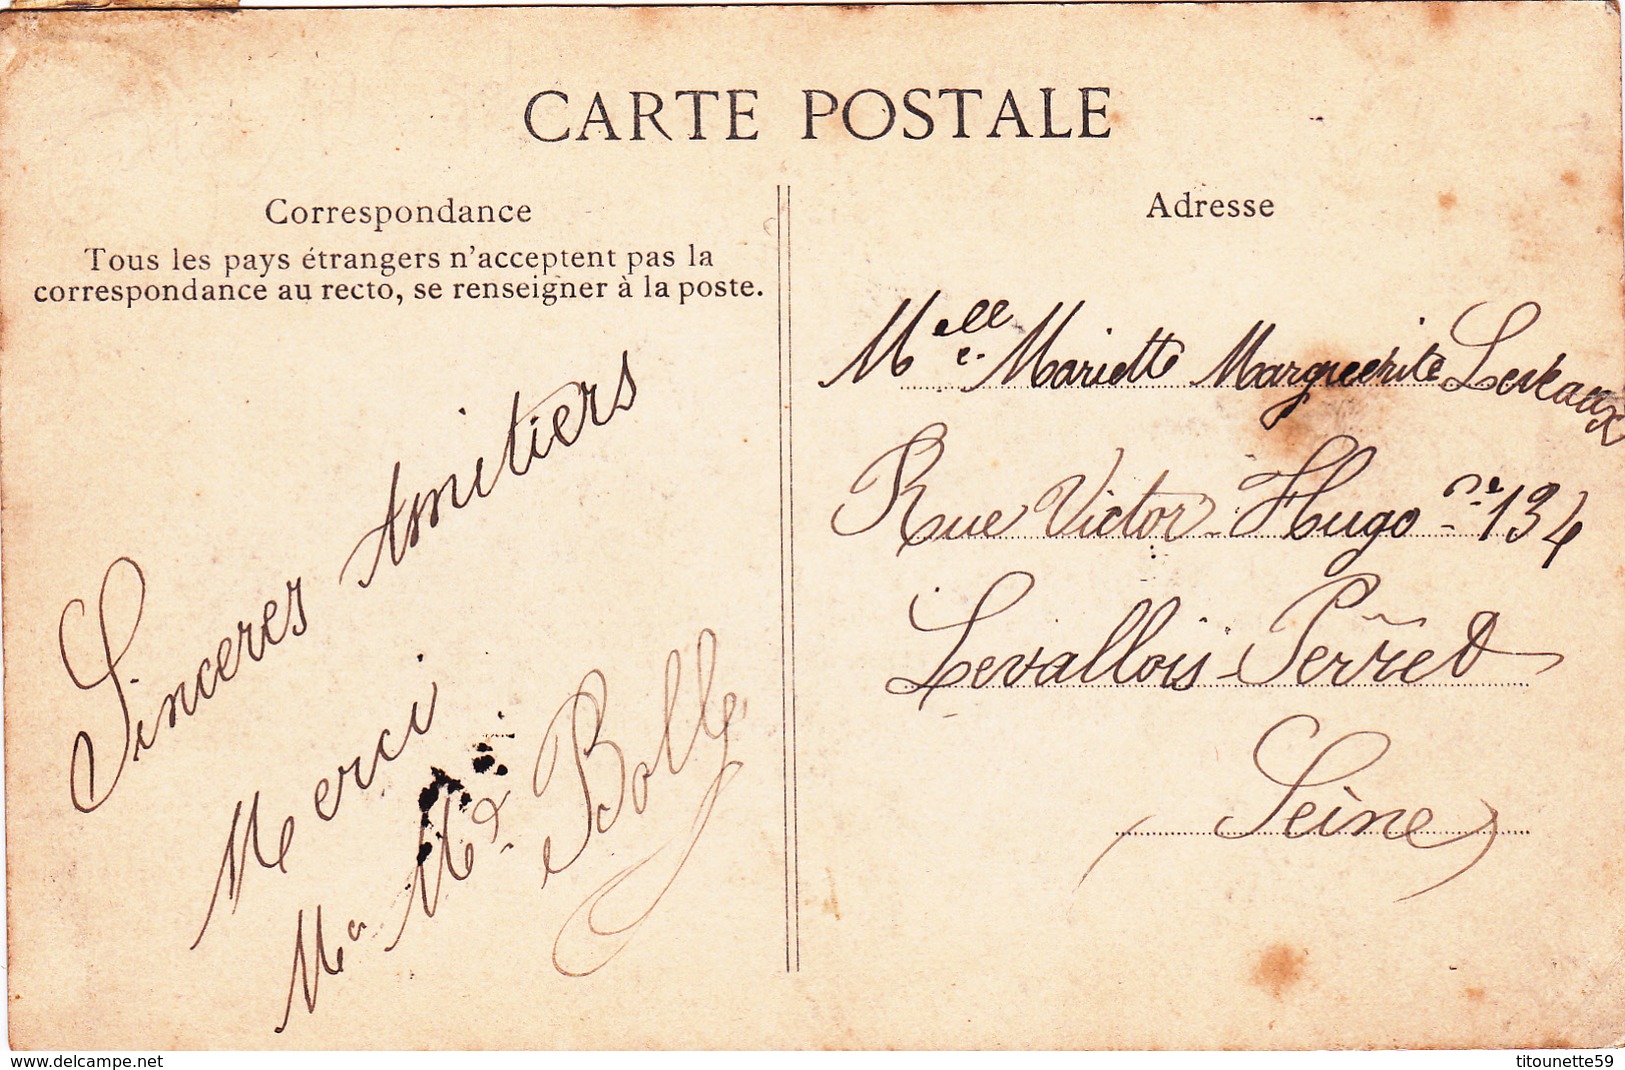 CARTE POSTALE
Correspondance
Tous les pays étrangers n'acceptent pas la
correspondance au recto, se renseigner à la poste.
Sinceres Amitiers
Merci
Bolle
Adresse
Melle Mariette Marguerite
Rue Victor Hugo no 134
Levallois-Perret
Seine
www.delcampe.net
titounette59